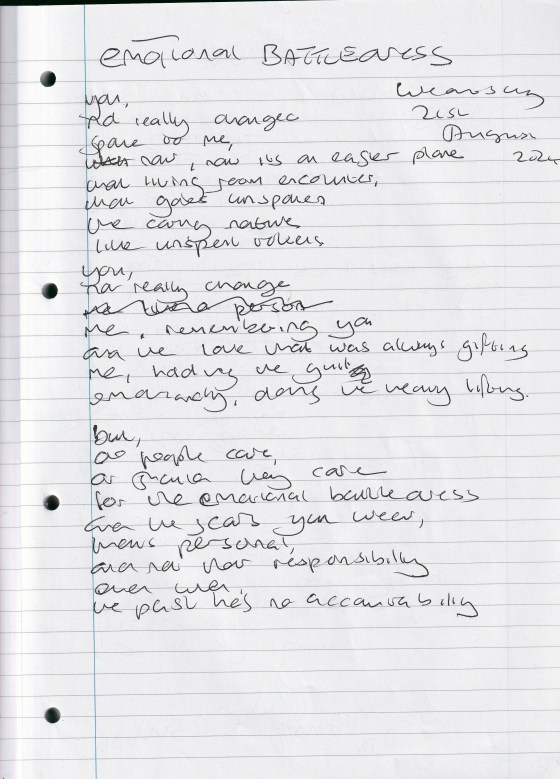 emotional BATTLEDRESS
Wednesday
21st
August
2024
you,
had really changed
to me,
now, now it's an easier place
that living room encounter,
that goes unspoken
the caring nature
like unspent vouchers
you,
had really change
person
me, remembering you
and the love that was always gifting
me, hiding the guilt
emotionally, doing the heavy lifting.
but,
do people care,
or should they care
for the emotional battledress
and the scars you wear,
that's personal,
and not their responsibility
and when,
the past has no accountability